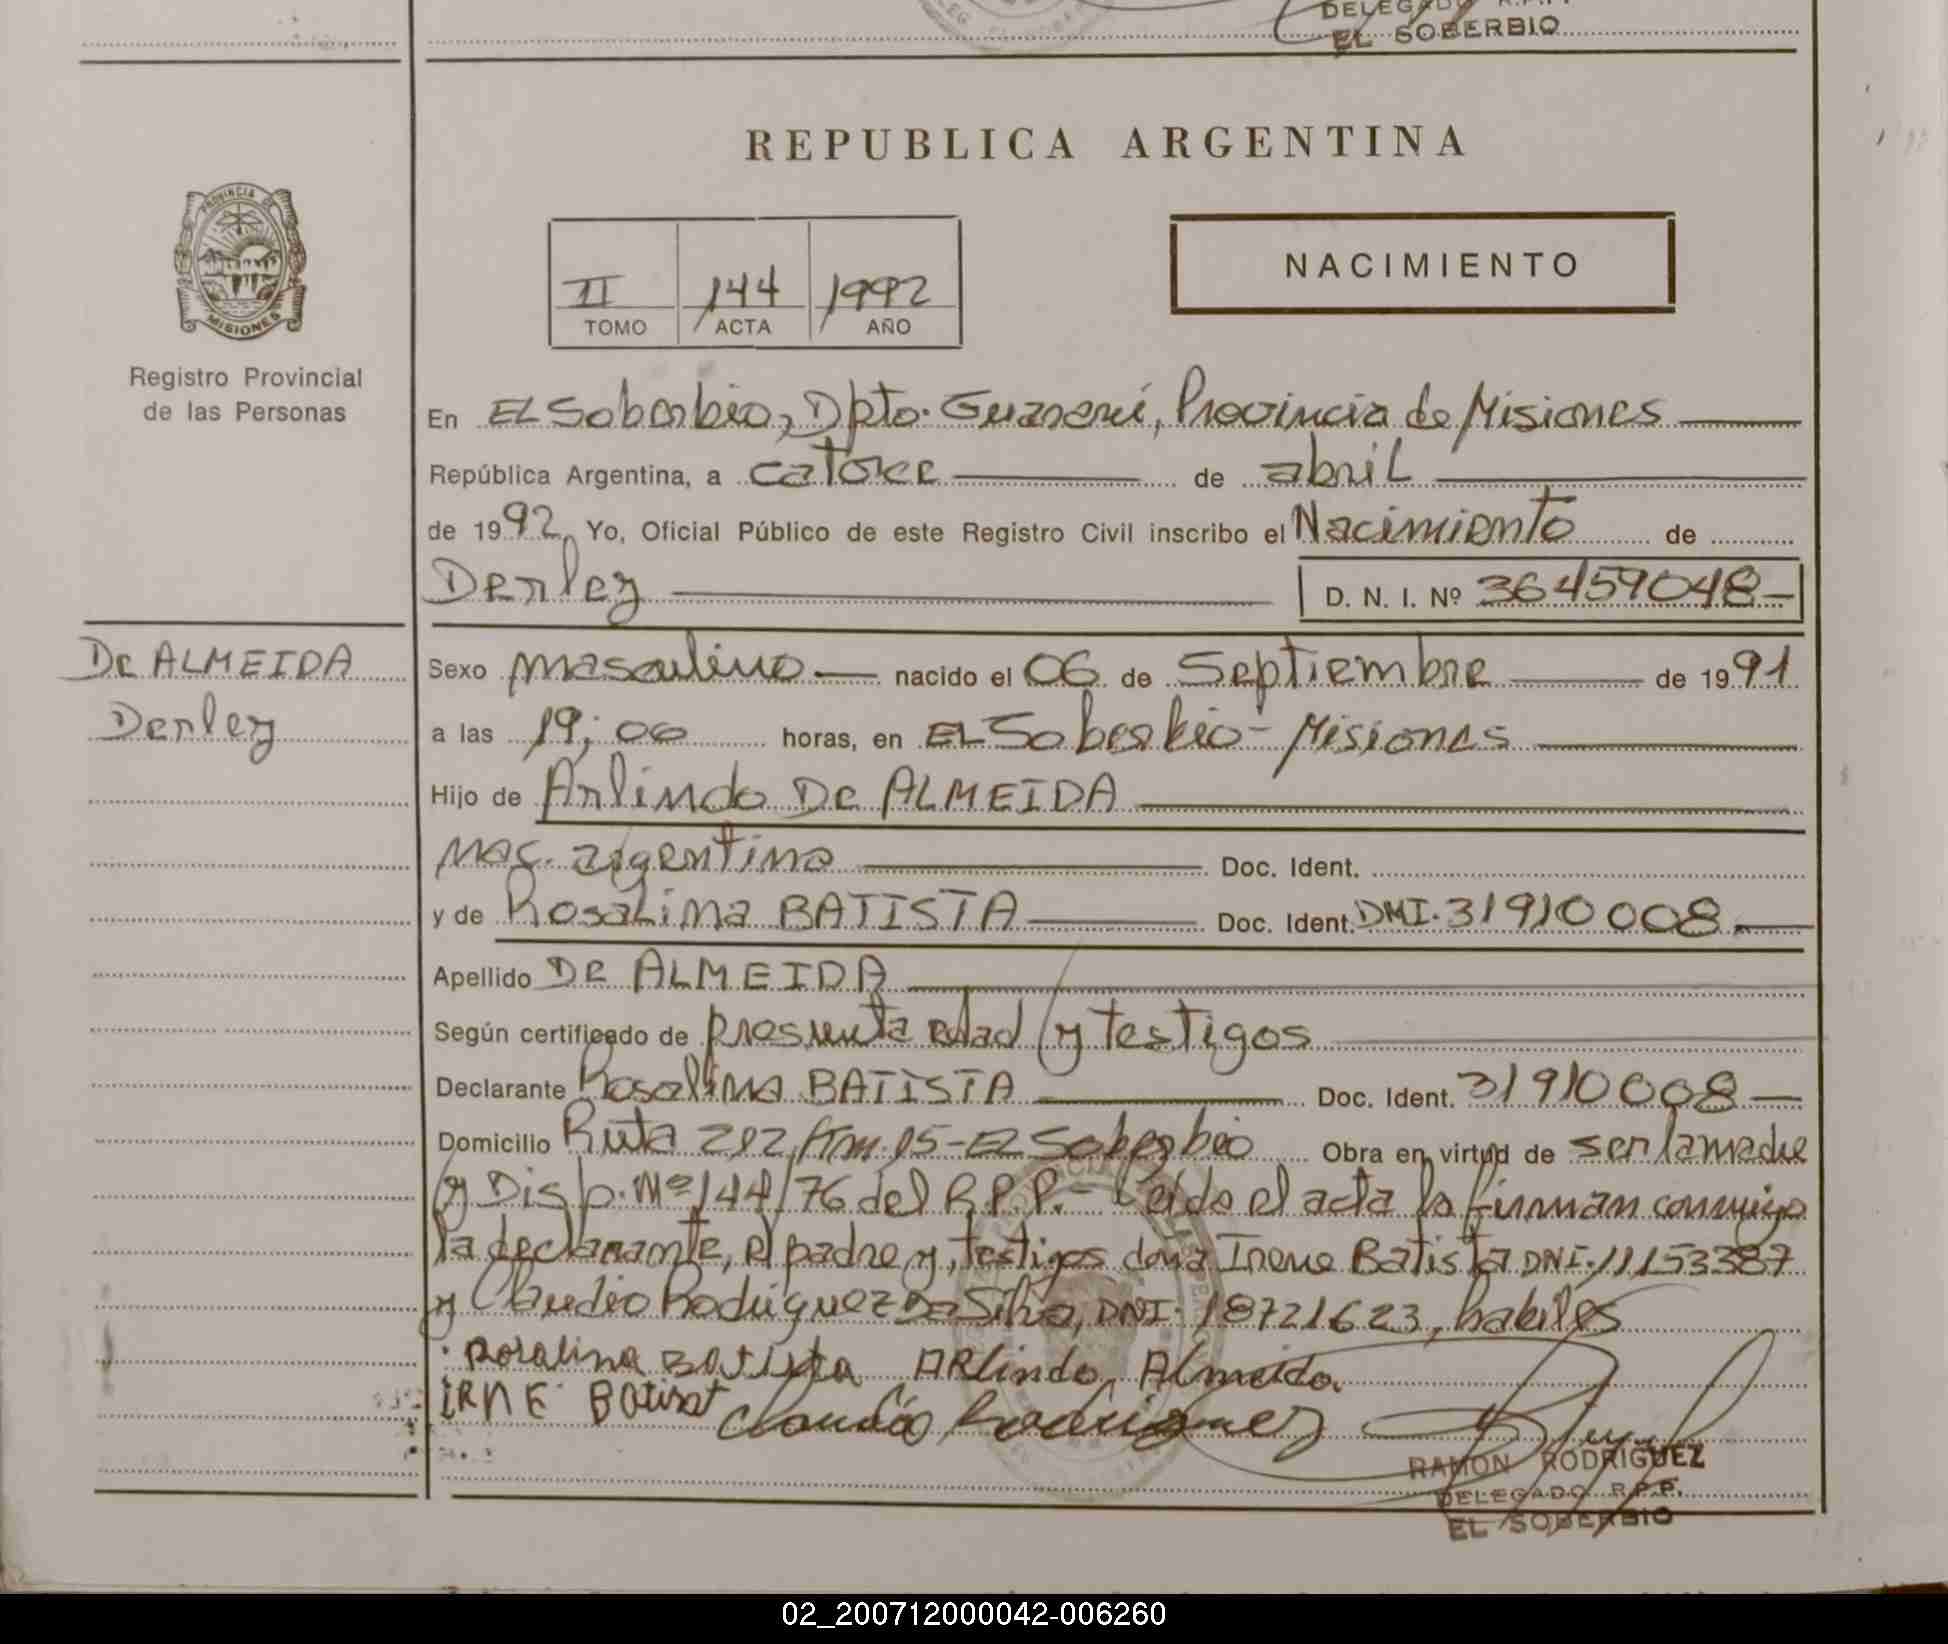 DELEGADO R.P.P.
EL SOBERBIO
REPUBLICA ARGENTINA
PROVINCIA DE
MISIONES
Registro Provincial
de las Personas
II 144 1992
TOMO ACTA AÑO
NACIMIENTO
En EL Soberbio, Dpto. Guaraní, Provincia de Misiones
República Argentina, a catorce de abril
de 1992 Yo, Oficial Público de este Registro Civil inscribo el Nacimiento de
Derley D. N. I. Nº 36459048-
De ALMEIDA
Derley
Sexo masculino nacido el 06 de Septiembre de 1991
a las 19:00 horas, en EL Soberbio - Misiones
Hijo de Arlindo De ALMEIDA
Nac. argentina Doc. Ident.
y de Rosalina BATISTA Doc. Ident. DNI. 31910008.
Apellido De ALMEIDA
Según certificado de presunta edad y testigos
Declarante Rosalina BATISTA Doc. Ident. 31910008
Domicilio Ruta 212 Km. 15 - El Soberbio Obra en virtud de ser la madre
y Disp. Nº 144/76 del R.P.P.- Leida el acta la firman conmigo
la declarante, el padre y, testigos dona Irene Batista DNI. 11153387
y Claudio Rodriguez Da Silva, DNI. 18721623, habiles
Rosalina Batista ARlindo Almeida
IRNE Batist Claudio Rodriguez
RAMON RODRIGUEZ
DELEGADO R.P.P.
EL SOBERBIO
02_200712000042-006260